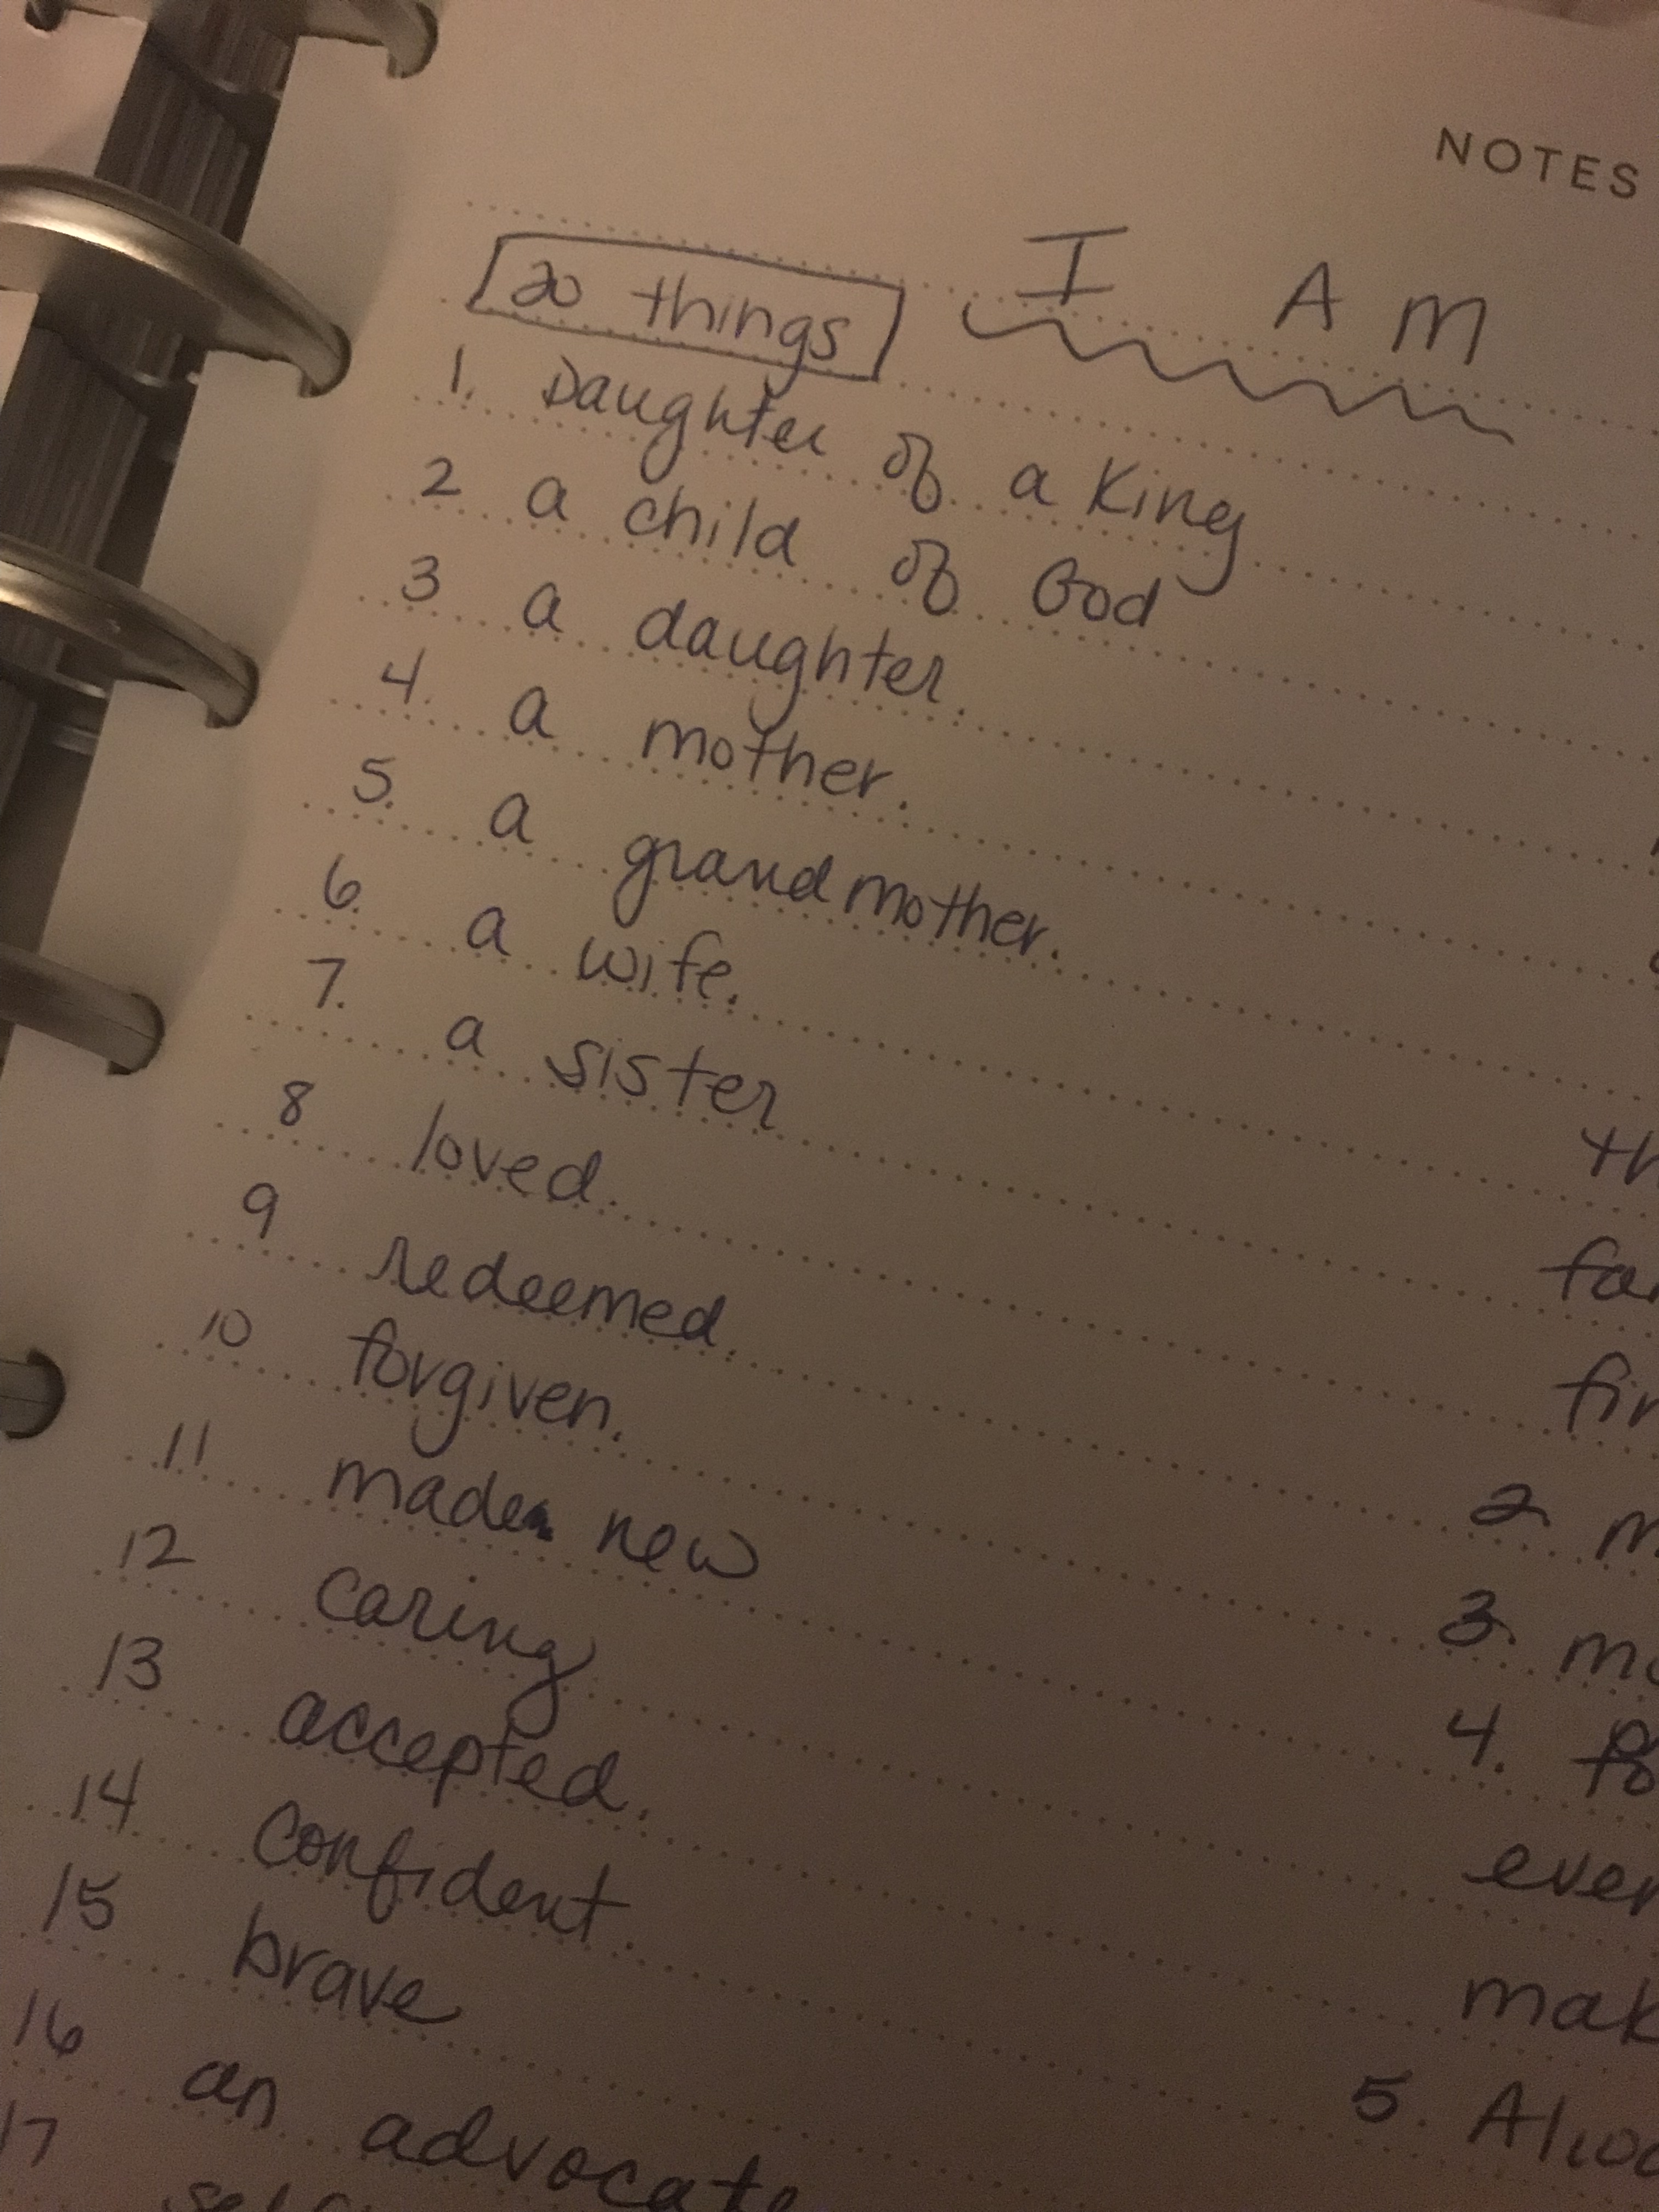 NOTES
20 things I AM
1. Daughter of a King
2 a child of God
3 a daughter.
4. a mother.
5. a grandmother.
6. a wife.
7. a sister
8 loved.
9 redeemed.
10 forgiven.
11 made new
12 caring
13 accepted.
14 confident.
15 brave
16 an advocate
17
2
3.
4.
ever
mak
5.